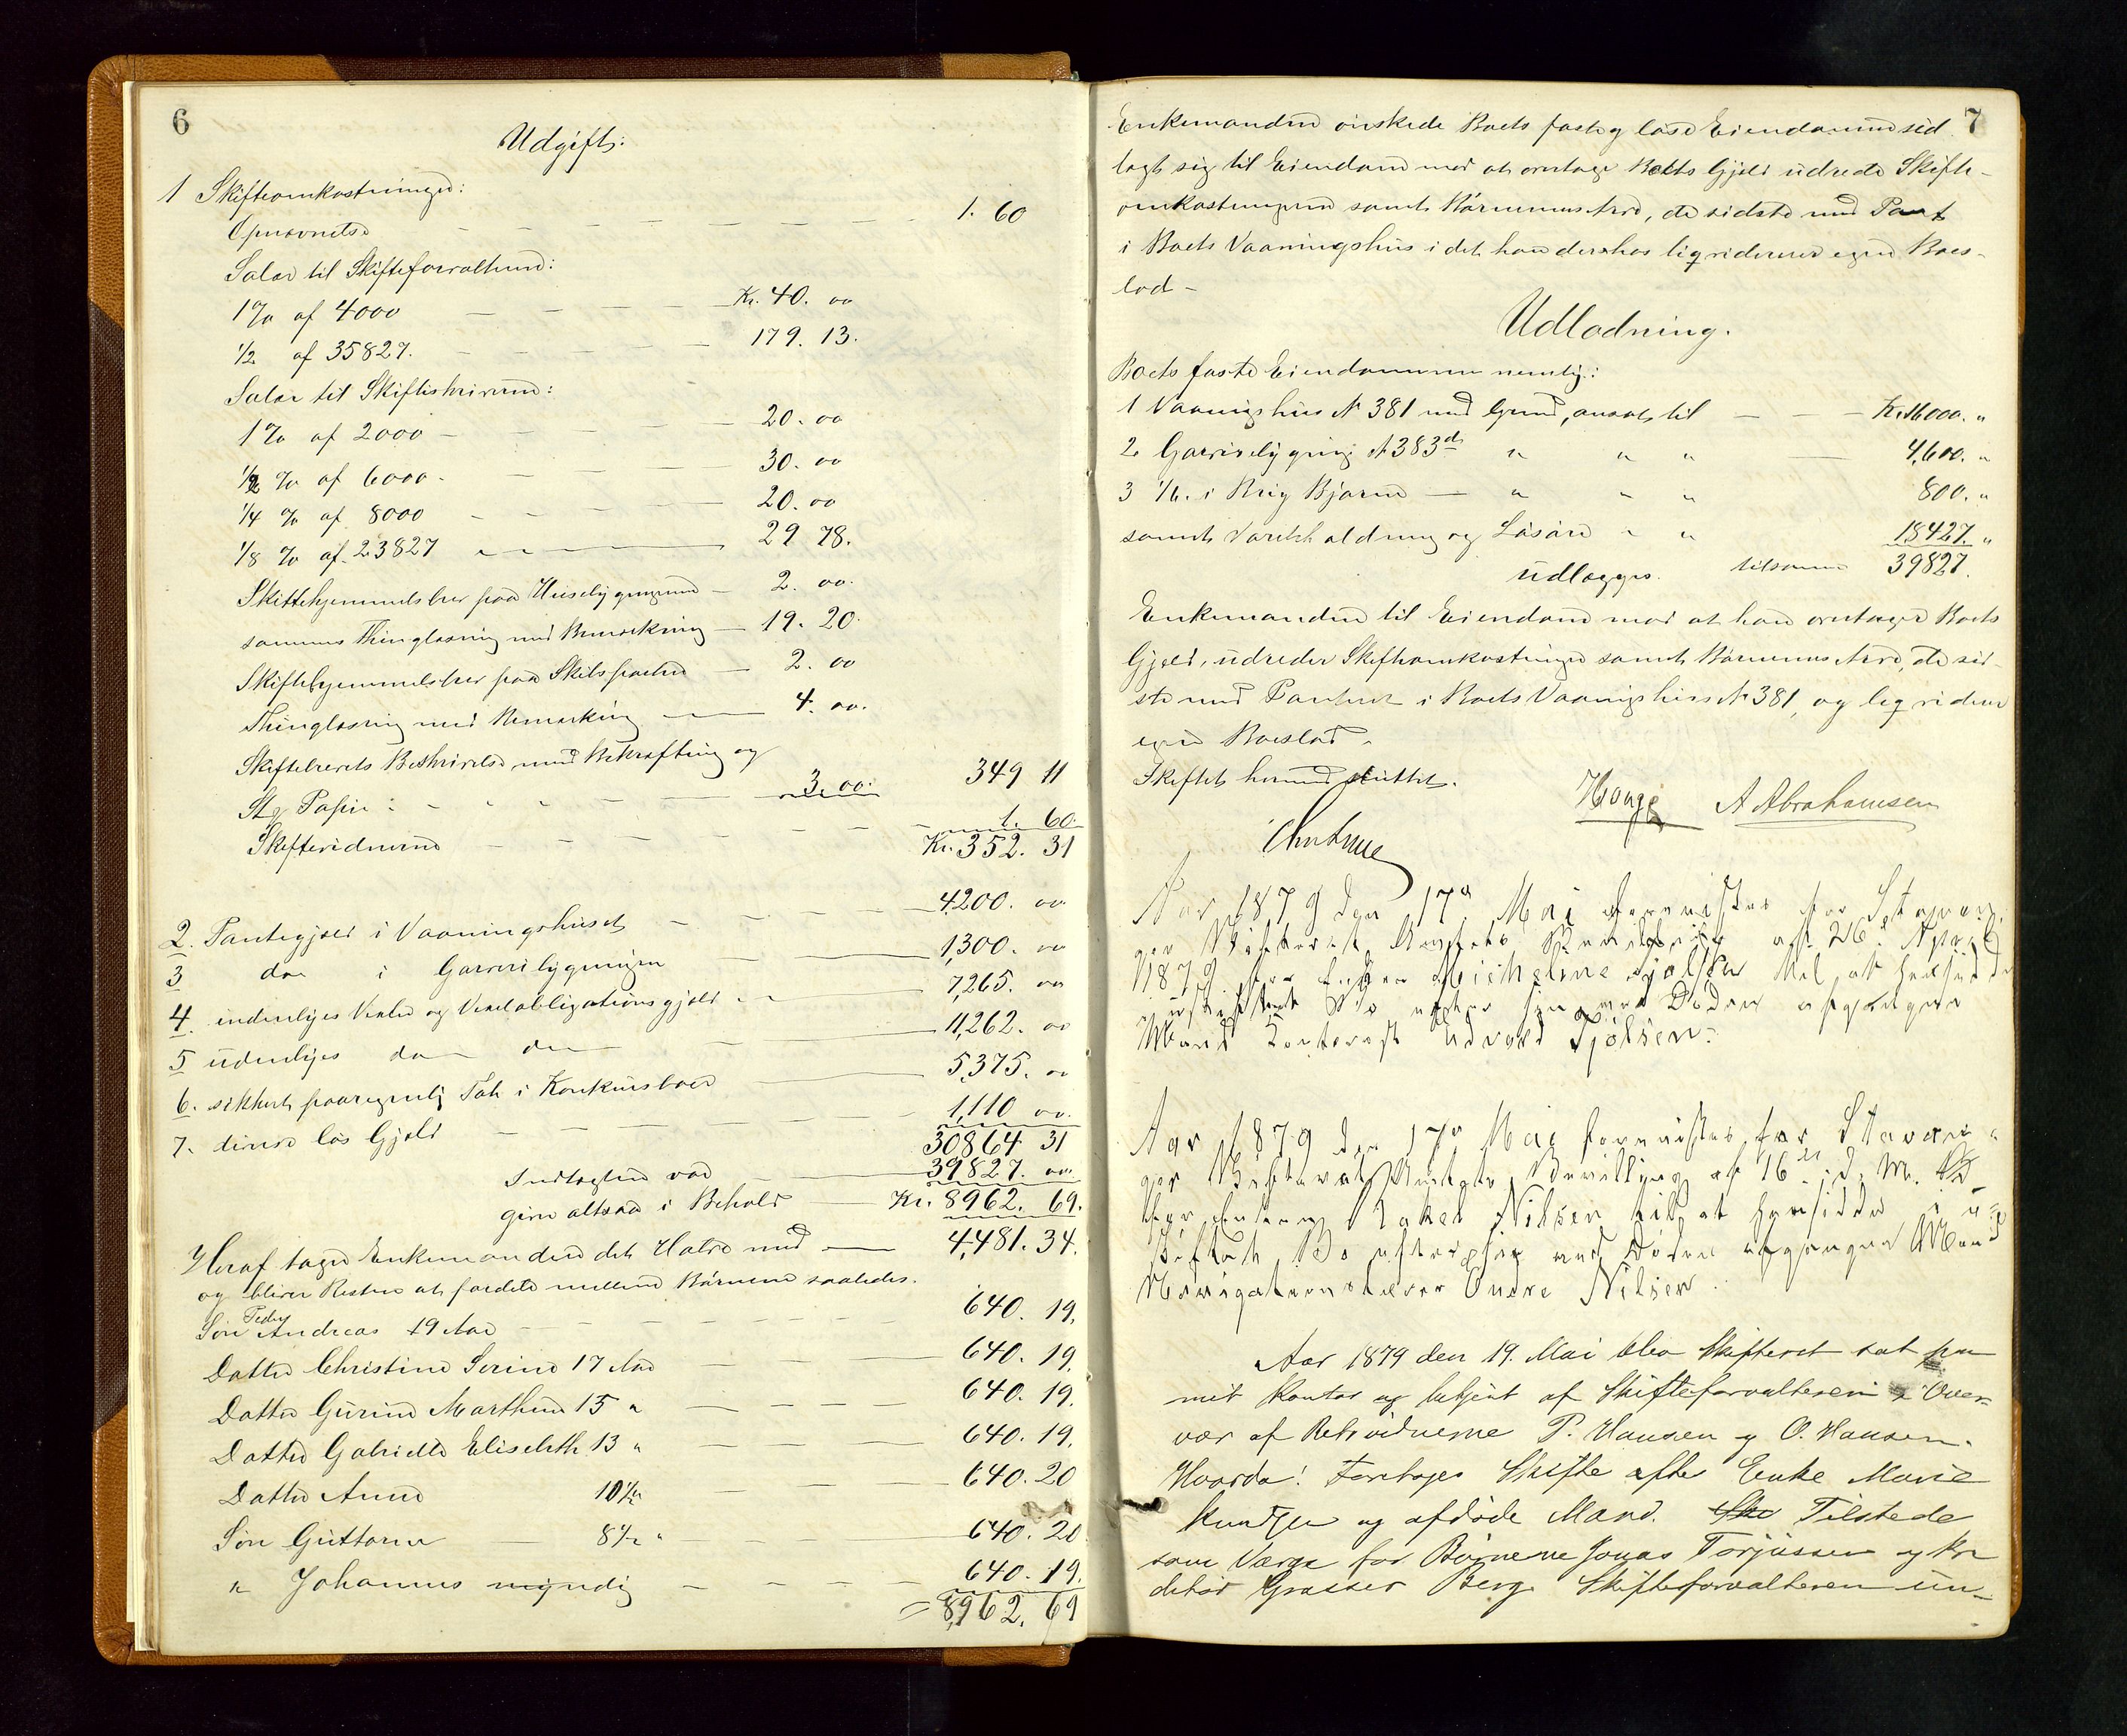 6
Udgift:
1 Skifteomkostninger:
Opnævnelse — — — — — — 1. 60
Salær til Skifteforvalteren:
1 % af 4000 — — — Kr. 40. 00
1/2 af 35827. — — — 179. 13.
Salær til Skifteskriveren:
1 % af 2000 — — — 20. 00
1/2 % af 6000. — — 30. 00
1/4 % af 8000 — — — 20. 00
1/8 % af 23827 — — 29 78.
Skiftehjemmelsbrev paa Huusbygningerne — 2. 00.
sammes Thinglæsning med Bemærkning — 19. 20.
Skiftehjemmelsbrev paa Skibsparten — 2. 00
Thinglæsning med Bemærkning — 4. 00.
Skiftebrevets Beskrivelse med Bekræftning og
St. Papir: — — — 3. 00. 349 11
Skiftevidnerne — — — 1. 60.
Kr. 352. 31
2. Pantegjæld i Vaaningshuset — — — 4200. 00
3 do i Garveribygningen — — 1,300. 00
4. indenbyes Vexler og Vexelobligationsgjæld — 7,265. 00
5 udenbyes do do — — 11,262. 00
6. sikkert paaregnelig Tab i Konkursboer — 5,375. 00
7. diverse løs Gjæld — — — 1,110 00.
30864 31
Indtægten var — 39827. 00
giver altsaa i Behold — Kr. 8962. 69.
Heraf tager Enkemanden det Halve med — 4,481. 34.
og bliver Resten at fordele mellem Børnene saaledes.
Søn Peder Andreas 19 Aar — — — 640. 19.
Datter Christine Serine 17 Aar — — 640. 19.
Datter Gurine Marthine 15 " — — — 640. 19.
Datter Gabrielle Elisebeth 13 " — — 640. 19.
Datter Anne 10 1/2 " — — 640. 20
Søn Guttorm — 8 1/2 " — — 640. 20
" Johannes myndig — — — 640. 19.
= 8,962. 69
7
Enkemanden ønskede Boets faste og løse Eiendomme ud-
lagt sig til Eiendom mod at overtage Boets Gjæld udrede Skifte-
omkostningerne samt Børnenes Arv, de sidste med Pant
i Boets Vaaningshus i det han derhos liqviderer egen Boes-
lod –
Udlodning.
Boets faste Eiendomme nemlig:
1 Vaaningshus № 381 med Grund, ansat til — — Kr. 16000. "
2 Garveribygning № 383 d " " " — 4,600. "
3 1/6. i Brig Bjarne — " " " 800. "
samt Varebeholdning og Løsøre " " 18427. "
udlægges. tilsammen 39827.
Enkemanden til Eiendom mod at han overtager Boets
Gjæld, udreder Skifteomkostninger samt Børnenes Arv, de sid-
ste med Panteret i Boets Vaaningshus № 381, og liqviderer
egen Boeslod.
Skiftet hermed sluttet.
Hauge A Abrahamsen
Aar 1879 den 17de Mai forevistes for Stavan-
ger Skifteret Amtets Bevilling af 26de April
1879 for Enken Micheline Tjølsen til at hensidde
i uskiftet Bo efter sin ved Døden afgangne
Mand Kontorist Edvard Tjølsen.
Aar 1879 den 17de Mai forevistes for Stavan-
ger Skifteret Amtets Bevilling af 16de d. M.
for Enken Rakel Nilsen til at hensidde i u-
skiftet Bo efter sin ved Døden afgangne Mand
Navigationslærer Endre Nilsen.
Aar 1879 den 19. Mai blev Skifteret sat paa
mit Kontor og betjent af Skifteforvalteren i Over-
vær af Retsvidnerne P. Hansen og O. Hansen.
Hvorda: Foretoges Skifte efter Enke Marie
Knudsen og afdøde Mand. Tilstede
som Værge for Børnene Jonas Torjussen og Kre
ditor Grosser Berg. Skifteforvalteren un-